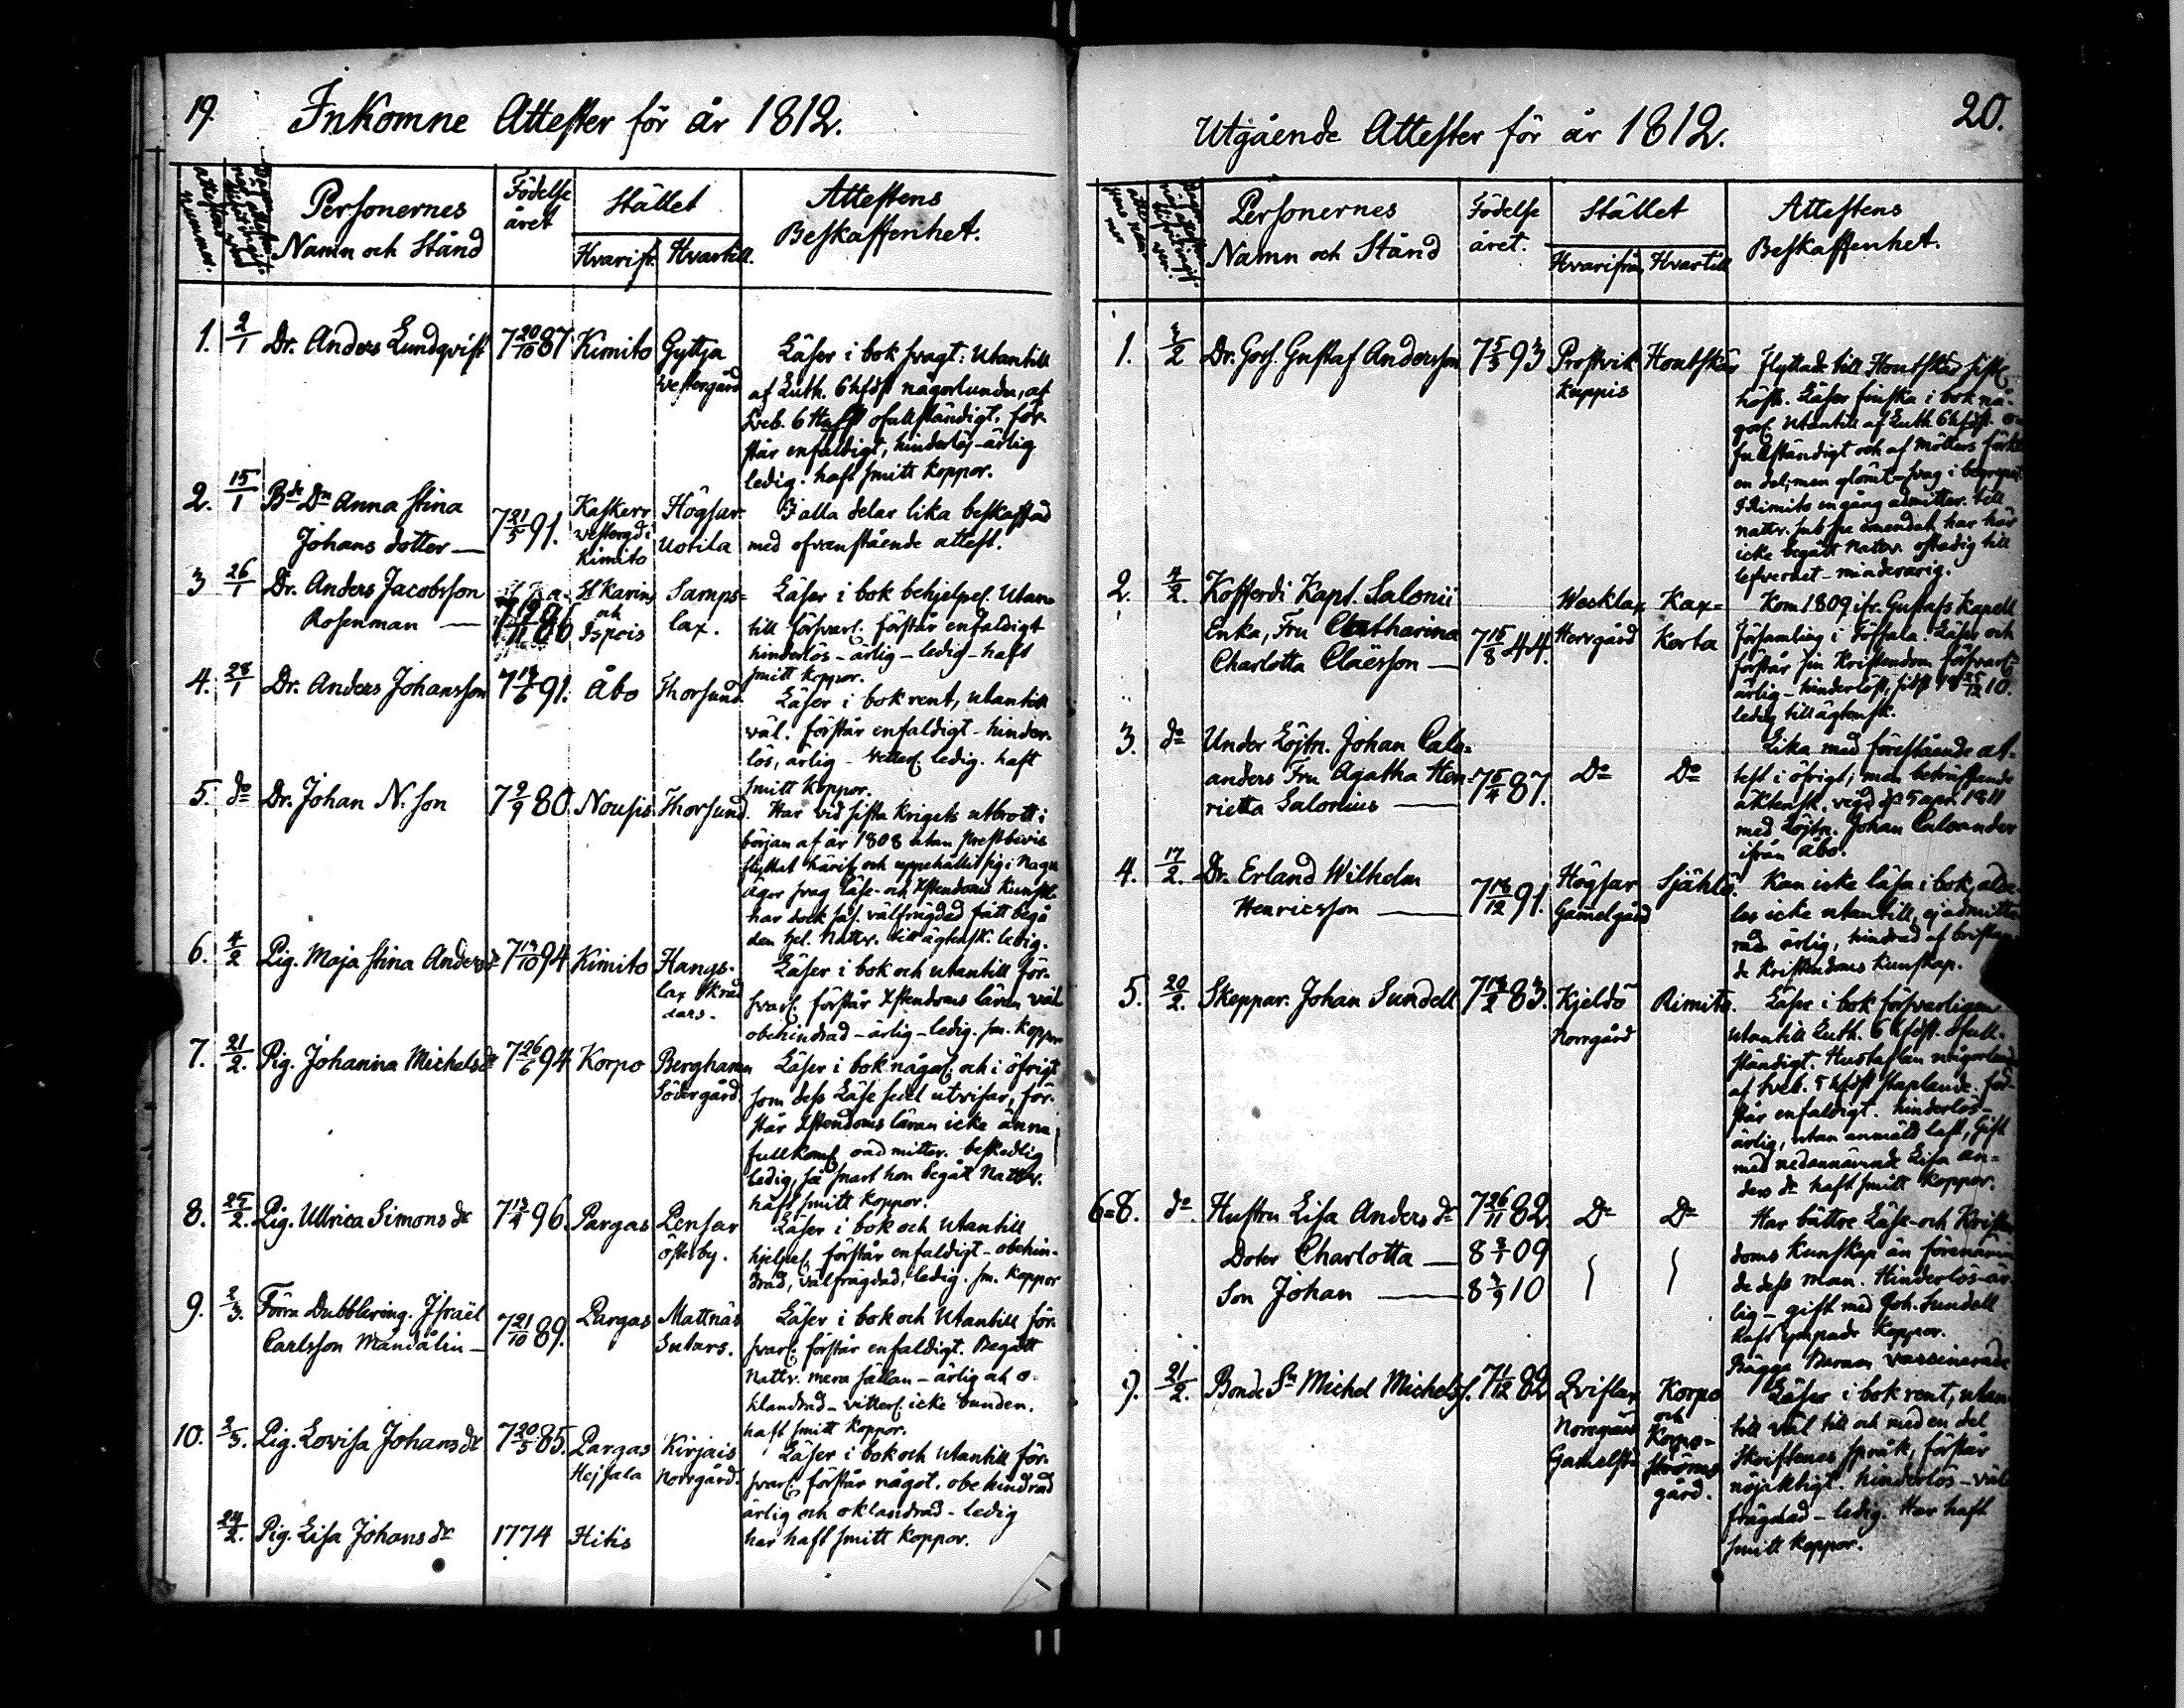 19.
Inkomne Attester för år 1812.
Attestens Nummer.
Personernes
Namn och Stånd
Födelse
året
Stället
Hvarifr. Hvartill.
Attestens
Beskaffenhet.
1. 2/1 Dr. Anders Lundqvist 7 20/10 87 Kimito Gyttja
Westergård
Läser i bok svagt: Utantill
af Luth. 6 hfdst någorlunda, af
Sveb. 6 Hufst ofullständigt, för-
står enfaldigt, hinderlös-ärlig
ledig. haft smitt koppor.
2. 15/1 Bde Dn Anna Stina
Johans dotter —
7 21/5 91.
Kaskerr
Westergd i
Kimito
Högsar
Uotila
I alla delar lika beskaffad
med ofvanstående attest.
3 26/1 Dr. Anders Jacobsson
Rosenman —
St Karins
och
Ispois
Samps-
lax.
Läser i bok behjelpel. Utan-
till försvarl. förstår enfaldigt
hinderlös - ärlig - ledig - haft
smitt koppor.
4. 28/1 Dr. Anders Johansson 91. Åbo Thorsund
Läser i bok rent, utantill
väl. förstår enfaldigt - hinder-
lös, ärlig - vetterl. ledig. haft
smitt koppor.
5. do Dr. Johan N. son 7 9/9 80. Nousis Thorsund.
Har vid sista Krigets utbrott i
början af år 1808 utan Prestbevis
flyttat härifr. och uppehållit sig i Nagu
Äger svag Läse- och Xstendoms Kunsk.
har dock så välfrägdad fått begå
den hel. Nattv. till ägtensk. ledig.
6. 4/2 Pig. Maja Stina Anders dr 94 Kimito Hangs-
lax Skräd
dars.
Läser i bok och utantill för-
svarl. förstår Xstendoms läran väl
obehindrad - ärlig - ledig. sm. koppor
7. 21/2. Pig. Johanna Michels dr 7 26/6 94 Korpo Bergham
Södergård.
Läser i bok någorl. och i öfrigt
som dess Läse sedel utvisar, för-
står Xstendoms läran icke ännu
fullkoml. oadmitter. beskedlig
ledig, så snart hon begått Nattv.
haft smitt koppor.
8. 25/2. Pig. Ullrica Simons dr 96. Pargas Pensar
österby.
Läser i bok och Utantill
hjelpel. förstår enfaldigt - obehin-
drad, välfrägdad, ledig. sm. koppor
9. 2/3. Förra Dubblering. Israël
Carlsson Mandålin —
7 21/10 89. Pargas Mattnäs
Sutars.
Läser i bok och Utantill för-
svarl. förstår enfaldigt. Begått
Nattv. mera sällan - ärlig och o-
klandrad - vitterl. icke bunden.
haft smitt koppor.
10. 2/3. Pig. Lovisa Johans dr 7 20/5 85. Pargas
Hejsala
Kirjais
Norrgård.
Läser i bok och Utantill för-
svarl. förstår något. obehindrad
ärlig och oklandrad - ledig
har haft smitt koppor.
24/2. Pig. Lisa Johans dr 1774 Hitis
20.
Utgående Attester för år 1812.
Personernes
Namn och Stånd
Födelse
året.
Stället
Hvarifrån Hvartill
Attestens
Beskaffenhet.
1. Dr. Gos. Gustaf Andersson 7 5/3 93 Prostvik
Kuppis
Houtskär
Flyttade till Houtskär sistl.
höst. Läser finska i bok nå-
gorl. Utantill af Luth. 6 hfdst. o-
fullständigt och af Möllers förk.
en del; men glömt - svag i begrepet.
I Rimito en gång admitter. till
nattv. sub spe emendat. har här
icke begått Nattv. ostadig till
lefvernet - minderårig.
2. 4/2. Kofferdi Kapt. Salonii
Enka, Fru Catharina
Charlotta Claësson —
7 15/8 44.
Wecklax
Herrgård
Kax-
Kerta
Kom 1809 ifr. Gustafs Kapell
församling i Töfsala. Läser och
förstår sin Kristendom försvarl.
ärlig - hinderlöst,
ledig till ägtensk.
3. do Under Löjtn. Johan Calo-
anders Fru Agatha Hen-
rietta Salonius —
7 15/4 87.
Do
Do
Lika med föreståande at-
test i öfrigt; men beträffande
äktensk. vigd d. 5 apr. 1811
med Löjtn. Johan Caloander
ifrån Åbo.
4. 17/2. Dr. Erland Wilhelm
Henricsson —
91.
Högsar
Gamelgård
Själö.
Kan icke läsa i bok, alde-
les icke utantill, ej admitte-
rad ärlig, hindrad af bristan-
de Kristendoms Kunskap.
5. 20/2. Skeppar. Johan Sundell 83. Kjeldö
Norrgård
Rimito.
Läser i bok försvarligen
Utantill Luth. 6 hfdst. ofull-
ständigt. Hustaflan någorlund
af Sveb. 5 hfdst staplande. för-
står enfaldigt. hinderlös -
ärlig, utan anmäld last, Gift
med nedannämnde Lisa An-
ders dr haft smitt koppor.
6=8. do. Hustru Lisa Anders dr 7 26/11 82. Do Do
Doter Charlotta — 09
Son Johan — 10
Har bättre Läse- och Kristen
doms Kunskap än förenämn
de dess man. Hinderlös-är-
lig - gift med Joh. Sundell
haft ympade koppor.
Bägge Barnen vaccinerade
9. 21/2. Bonde Sn Michel Michelss. 7 1/12 82 Qvislax
Norrgård
Korpo
och
Korpo-
ströms-
gård.
Läser i bok rent, utan-
till väl till och med en del
Skriftenes språk, förstår
nöjaktigt. hinderlös - väl
frägdad - ledig. Har haft
smitt koppor.